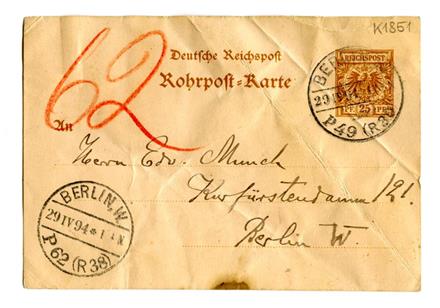 K1851
62
Deutsche Reichspost
Rohrpost-Karte
REICHSPOST
25 PF
BERLIN, W.
29 IV 94
P49 (R38)
An
Herrn Edv. Munch
Kurfürstendamm 121.
Berlin W.
BERLIN, W.
29 IV 94 * N
P62 (R38)